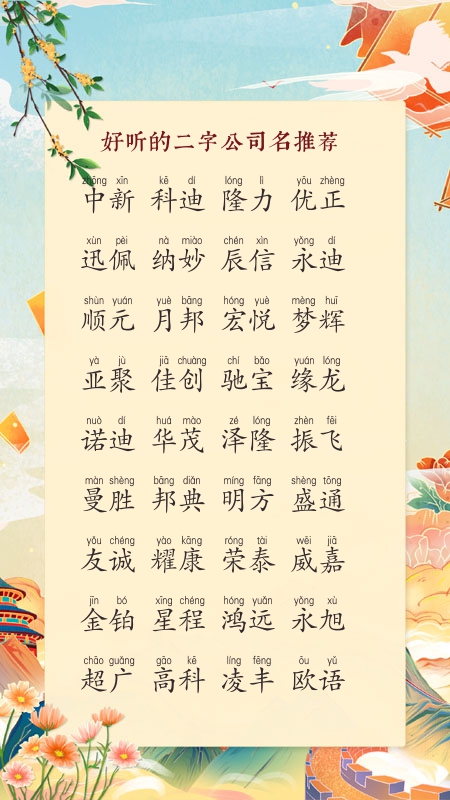 好听的二字公司名推荐
zhōng xīn kē dí lóng lì yōu zhèng
中新 科迪 隆力 优正
xùn pèi nà miào chén xìn yǒng dí
迅佩 纳妙 辰信 永迪
shùn yuán yuè bāng hóng yuè mèng huī
顺元 月邦 宏悦 梦辉
yà jù jiā chuàng chí bǎo yuán lóng
亚聚 佳创 驰宝 缘龙
nuò dí huá mào zé lóng zhèn fēi
诺迪 华茂 泽隆 振飞
màn shèng bāng diǎn míng fāng shèng tōng
曼胜 邦典 明方 盛通
yǒu chéng yào kāng róng tài wēi jiā
友诚 耀康 荣泰 威嘉
jīn bó xīng chéng hóng yuǎn yǒng xù
金铂 星程 鸿远 永旭
chāo guǎng gāo kē líng fēng ōu yǔ
超广 高科 凌丰 欧语